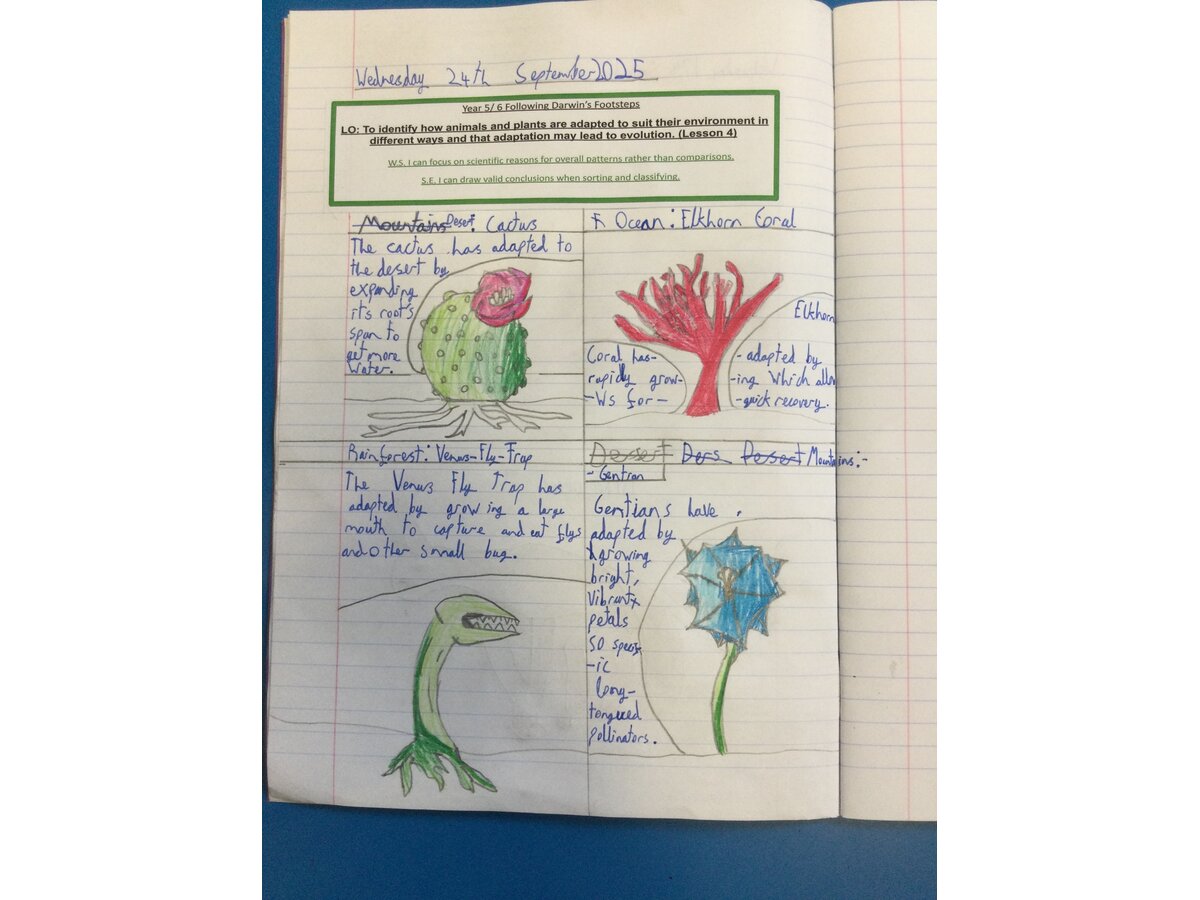 Wednesday 24th September 2025
Year 5/ 6 Following Darwin's Footsteps
LO: To identify how animals and plants are adapted to suit their environment in
different ways and that adaptation may lead to evolution. (Lesson 4)
W.S. I can focus on scientific reasons for overall patterns rather than comparisons.
S.E. I can draw valid conclusions when sorting and classifying.
Mountains Desert: Cactus
The cactus has adapted to
the desert by
expanding
it's root's
span to
get more
water.
Ocean: Elkhorn Coral
Elkhorn
Coral has-
- adapted by
rapidly grow-
-ing Which allow
-Ws for-
-quick recovery.
Rainforest: Venus-Fly-Trap
The Venus Fly Trap has
adapted by growing a large
mouth to capture and eat flys
and other small bug.
Dessert Ders Desert Mountains:-
- Gentian
Gentians have
adapted by
growing
bright,
vibrant
petals
so specif
-ic
long-
tongued
pollinators.